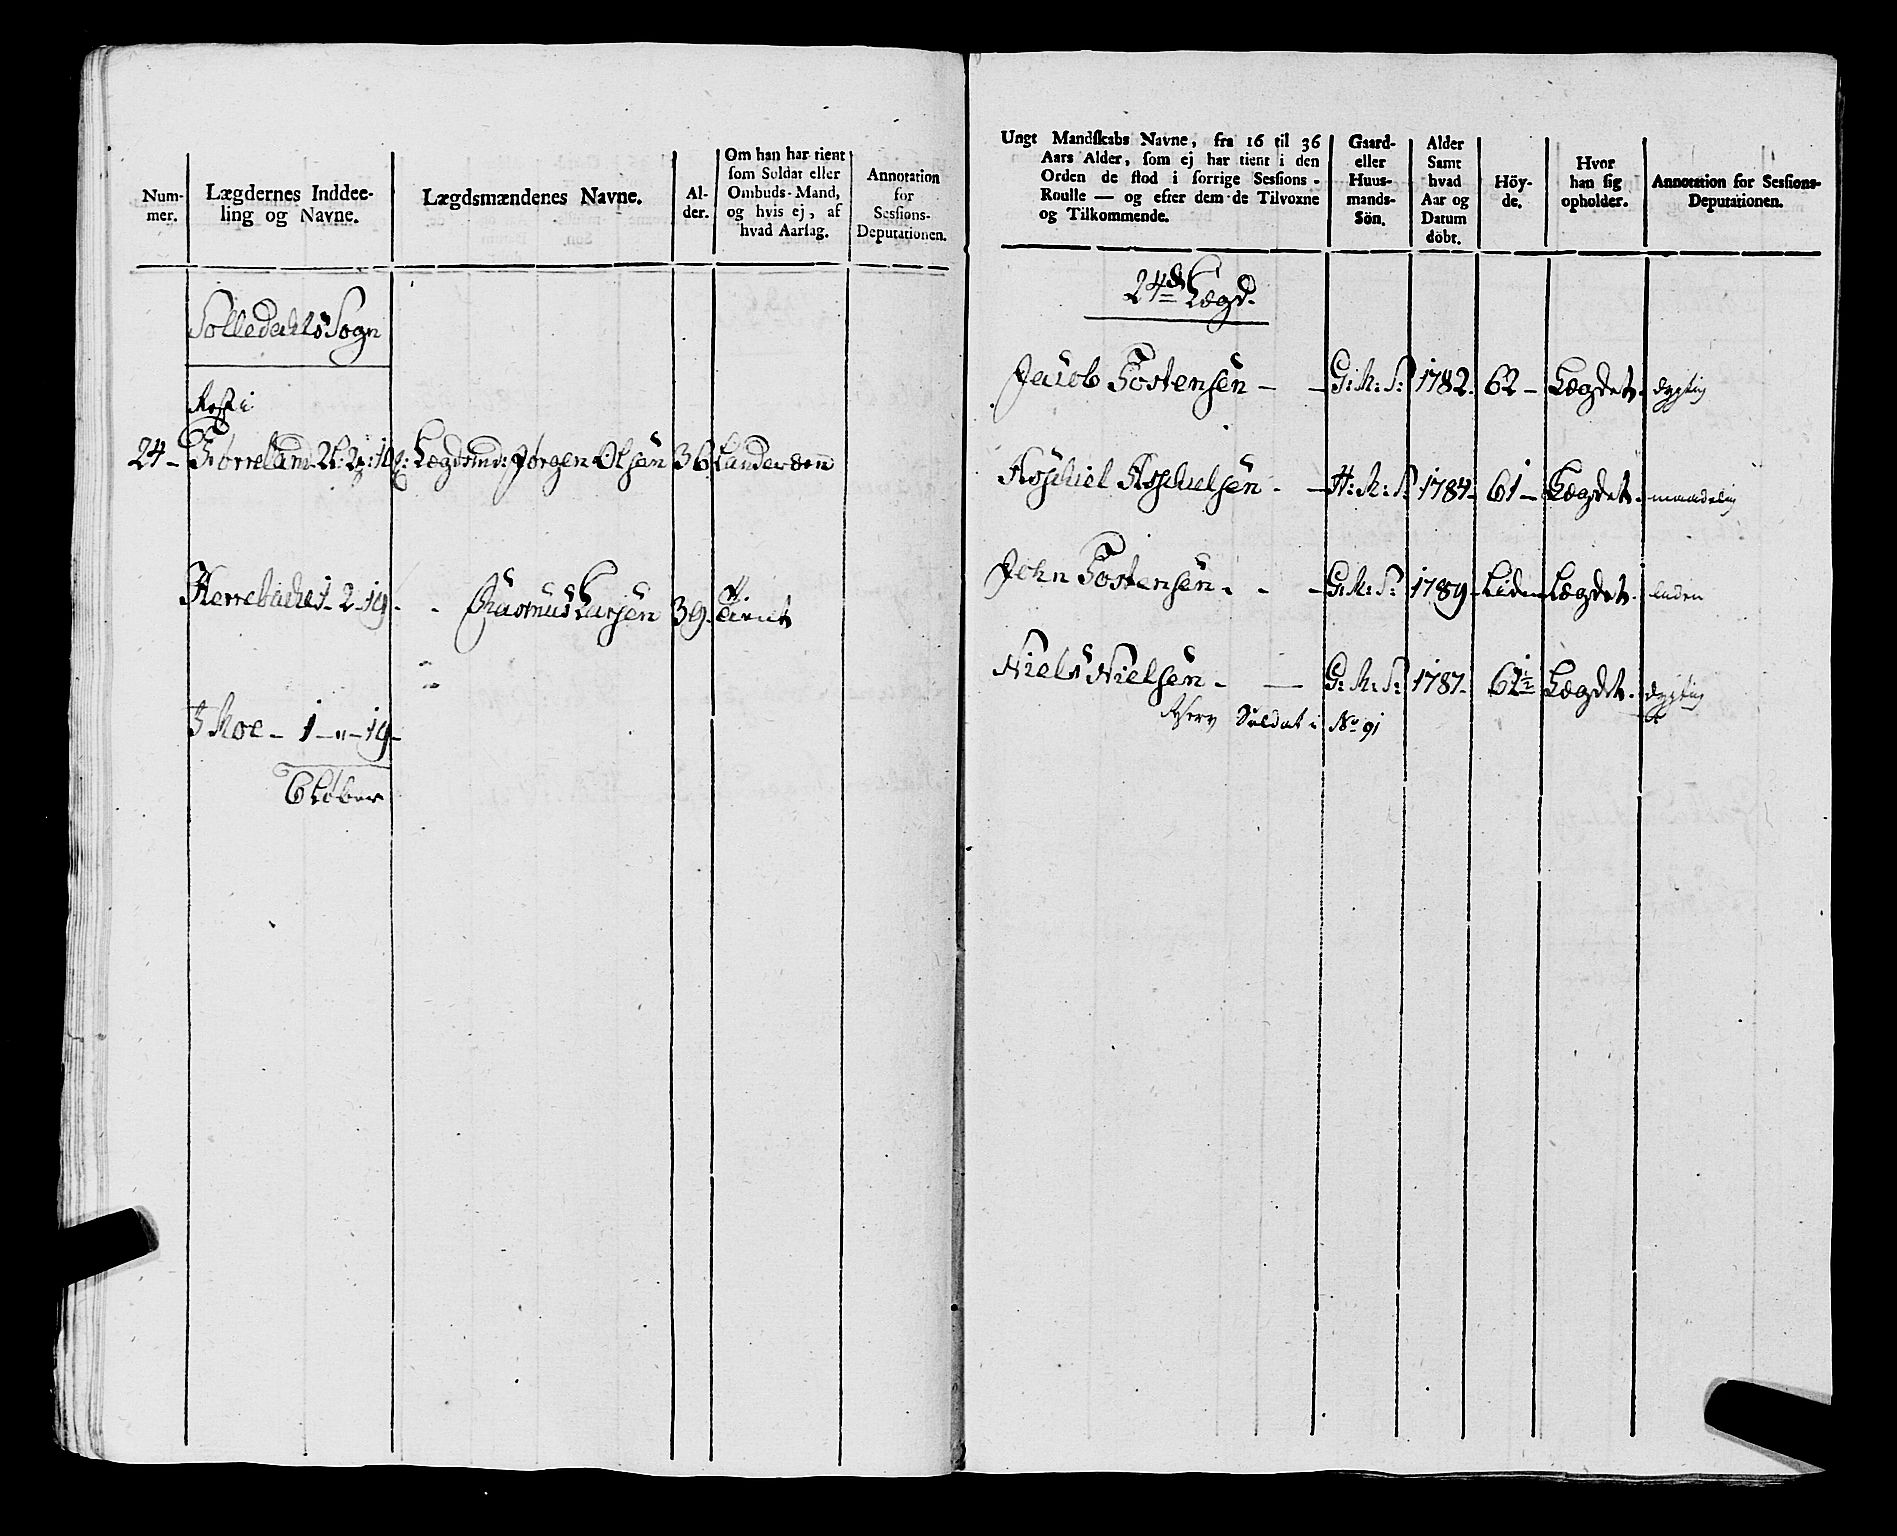 Num-
mer.
Lægdernes Inddee-
ling og Navne.
Lægdsmændenes Navne.
Al-
der.
Om han har tient
som Soldat eller
Ombuds-Mand,
og hvis ej, af
hvad Aarsag.
Annotation
for
Sessions-
Deputationen.
Solledahls Sogn
24 Lægdsmd: Jørgen Olsen 36
Herrebache 1 - 2 - 19 - - Rasmus Larsen 39. tient
Moe - 1 - " - 19 -
6 Løber
Ungt Mandskabs Navne, fra 16 til 36
Aars Alder, som ej har tient i den
Orden de stod i forrige Sessions-
Roulle — og efter dem de Tilvoxne
og Tilkommende.
Gaard-
eller
Huus-
mands-
Sön.
Alder
Samt
hvad
Aar og
Datum
döbt.
Höy-
de.
Hvor
han sig
opholder.
Annotation for Sessions-
Deputationen.
24de Lægd.
Jacob Tostensen - - G: M: S: 1782. 62 - Lægdet. dygtig
Aschiel Aschielsen - - H: M: S: 1784 - 61 - Lægdet. maadelig
John Tostensen - - - G: M: S: 1789 - Liden Lægdet. liden
Niels Nielsen - — G: M: S: 1787 - 62½ Lægdet. dygtig
Soldat i No 91